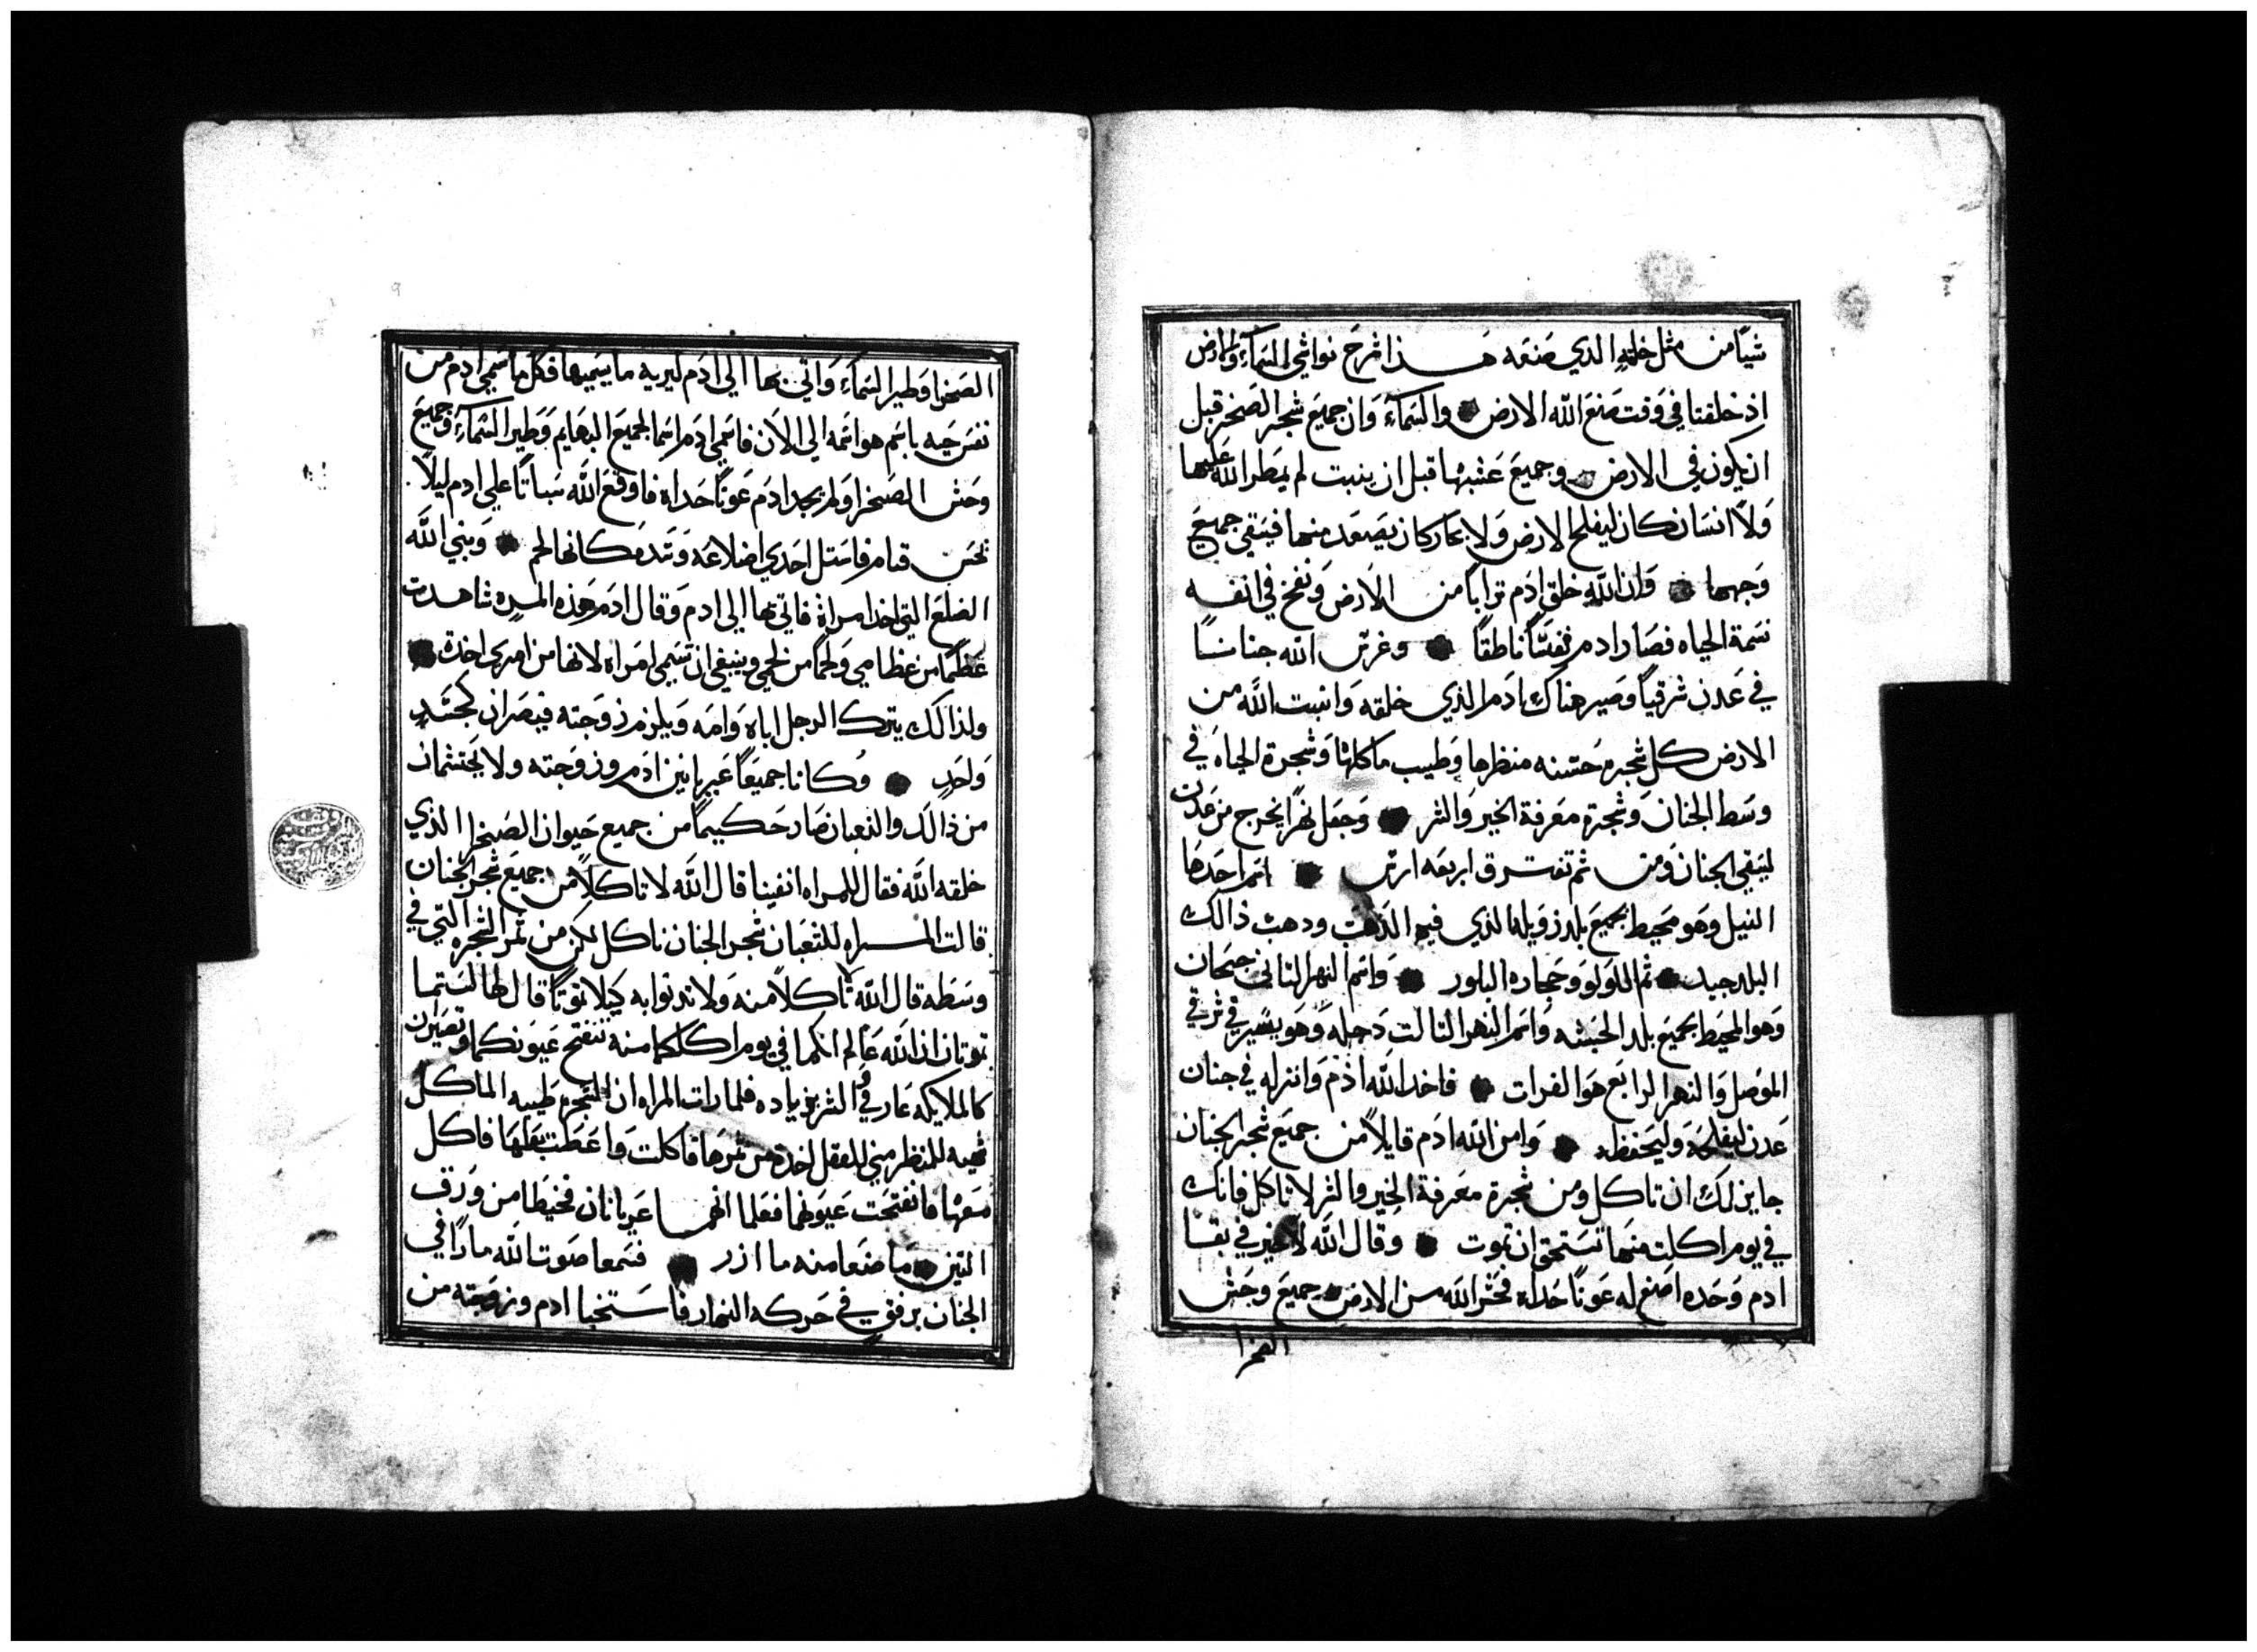 شيًا من مثل خلقه الذي صنعه هذا شرح نواشي السماء والارض
اذ خلقتا في وقت صنع الله الارض والسماء وان جميع شجر الصخر قبل
ان يكون في الارض وجميع عشبها قبل ان ينبت لم يمطر الله عليها
ولا انسان كان ليفلح الارض ولا بخار كان يصعد منها فيسقي جميع
وجهها وان الله خلق ادم ترابًا من الارض ونفخ في انفه
نسمة الحياه فصار ادم نفسًا ناطقًا وغرس الله جنانًا
في عدن شرقيًا وصير هناك ادم الذي خلقه وانبت الله من
الارض كل شجره حسنه منظرها وطيب ماكلها وشجرة الحياه في
وسط الجنان وشجرة معرفة الخير والشر وجعل نهرًا يخرج من عدن
ليسقي الجنان ومن ثم تفترق اربعه ارس اسم احدها
النيل وهو محيط بجميع بلد زويله الذي فيه الذهب ودهب ذالك
البلد جيد ثم اللولو وحجاره البلور واسم النهر الثاني جيحان
وهو المحيط بجميع بلد الحبشه واسم النهر الثالت دجله وهو يسير في شرقي
الموصل والنهر الرابع هو الفرات فاخد الله ادم وانزله في جنان
عدن ليفلحه وليحفظه وامر الله ادم قايلاً من جميع شجر الجنان
جايز لك ان تاكل ومن شجرة معرفة الخير والشر لا تاكل فانك
في يوم اكلت منها تستحق ان تموت وقال الله لا خير في بقا
ادم وحده اصنع له عونًا حداه فحشر الله من الارض جميع وحش
الصخرا
الصخرا وطير السماء واتي بها الي ادم ليريه ما يسميها فكل ما سمي ادم من
نفس حيه باسم هو اسمه الي الان فاسمي ادم اسما لجميع البهايم وطير السماء وجميع
وحش الصخرا ولم يجد ادم عونًا حداه فاوقع الله سباتًا علي ادم ليلاً
قنام فاستل احدي اضلاعه وسد مكانها لحم وبني الله
الضلع التي اخد امراة فاتي بها الي ادم وقال ادم هذه المره شاهدت
عظمًا من عظامي ولحمًا من لحمي وينبغي ان تسمي امراه لانها من امري اخدة
ولذالك يترك الرجل اباه وامه ويلزم زوجته فيصران كجسد
واحد وكانا جميعًا عريانين ادم وزوجته ولا يحتشمان
من ذالك والثعبان صار حكيمًا من جميع حيوان الصخرا الذي
خلقه الله فقال للمراه انفينا قال الله لا تاكلا من جميع شجر الجنان
قالت المراه للثعبان شجر الجنان ناكل لكن من ثمر الشجره التي في
وسطه قال الله لا تاكلا منه ولا تدنوا به كيلا تموتا قال لها لستما
تموتان ان الله عالم انكما في يوم اكلكما منه تنفتح عيونكما وتصيران
كالملايكه عارفي والشر بزياده فلما رات المراه ان الشجره طيبه الماكل
شهيه للمنظر مني للعقل اخدة من ثمرها فاكلت واعطت بعلها فاكل
معها فانفتحت عيونهما فعلما انهما عريانان فخيطا من ورق
التين ما صنعا منه ما ازر فسمعا صوت الله مارًا في
الجنان برفق في حركه النهار فاستخبا ادم وزوجته من